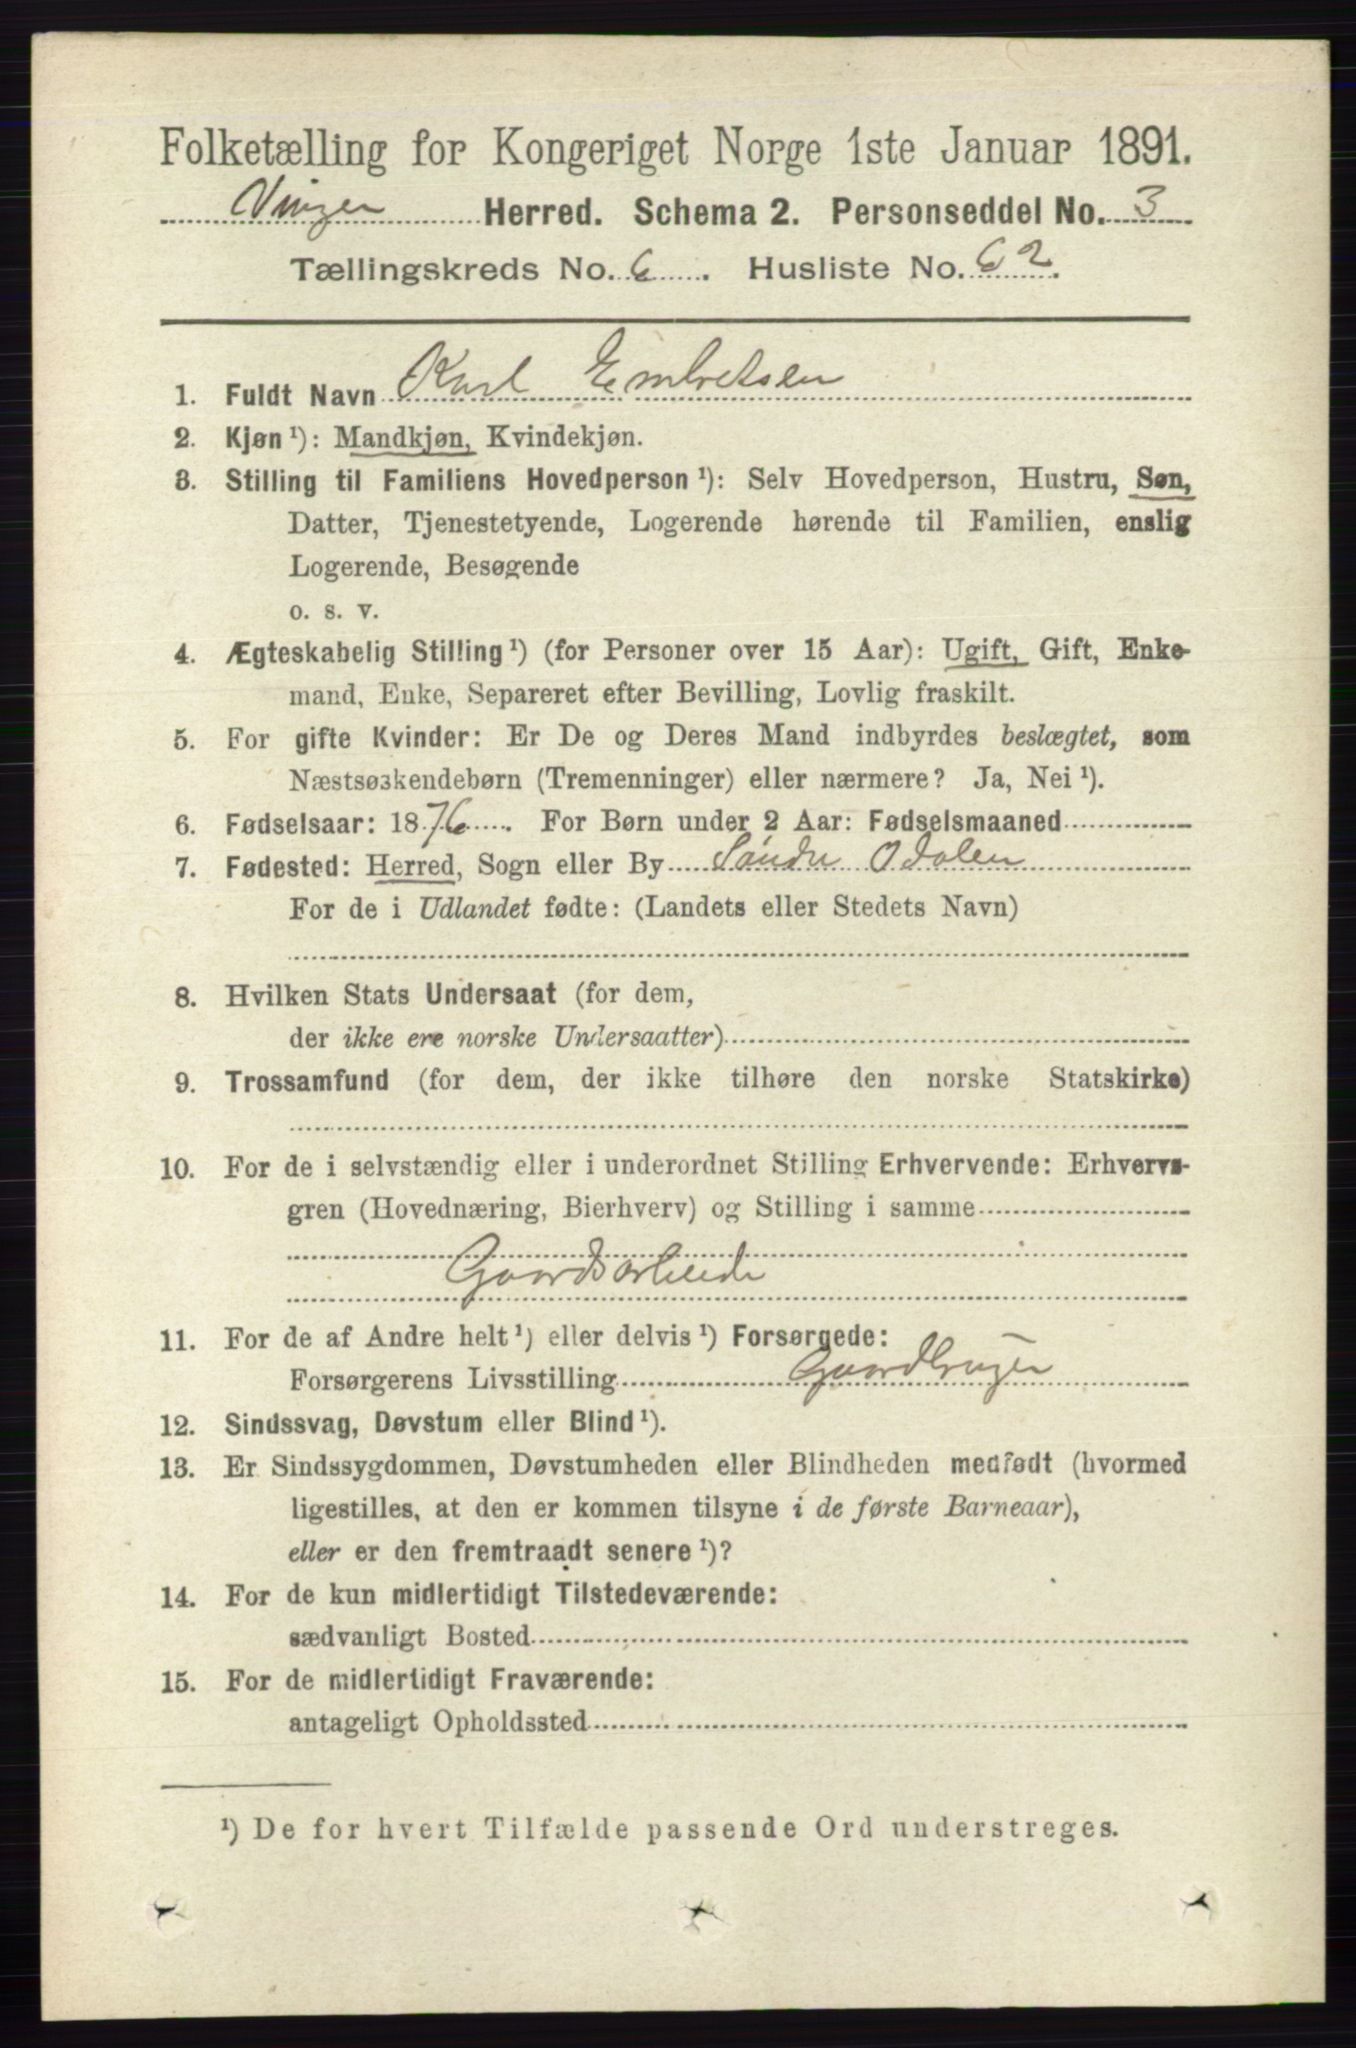 Folketælling for Kongeriget Norge 1ste Januar 1891.
Vinger Herred. Schema 2. Personseddel No. 3
Tællingskreds No. 6. Husliste No. 62.
1. Fuldt Navn Karl Embretsen
2. Kjøn ¹): Mandkjøn, Kvindekjøn.
3. Stilling til Familiens Hovedperson ¹): Selv Hovedperson, Hustru, Søn,
Datter, Tjenestetyende, Logerende hørende til Familien, enslig
Logerende, Besøgende
o. s. v.
4. Ægteskabelig Stilling ¹) (for Personer over 15 Aar): Ugift, Gift, Enke-
mand, Enke, Separeret efter Bevilling, Lovlig fraskilt.
5. For gifte Kvinder: Er De og Deres Mand indbyrdes beslægtet, som
Næstsøskendebørn (Tremenninger) eller nærmere? Ja, Nei ¹).
6. Fødselsaar: 1876. For Børn under 2 Aar: Fødselsmaaned
7. Fødested: Herred, Sogn eller By Søndre Odalen
For de i Udlandet fødte: (Landets eller Stedets Navn)
8. Hvilken Stats Undersaat (for dem,
der ikke ere norske Undersaatter)
9. Trossamfund (for dem, der ikke tilhøre den norske Statskirke)
10. For de i selvstændig eller i underordnet Stilling Erhvervende: Erhvervs-
gren (Hovednæring, Bierhverv) og Stilling i samme
Gaardsarbeide
11. For de af Andre helt ¹) eller delvis ¹) Forsørgede:
Forsørgerens Livsstilling Gaardbruger
12. Sindssvag, Døvstum eller Blind ¹).
13. Er Sindssygdommen, Døvstumheden eller Blindheden medfødt (hvormed
ligestilles, at den er kommen tilsyne i de første Barneaar),
eller er den fremtraadt senere ¹)?
14. For de kun midlertidigt Tilstedeværende:
sædvanligt Bosted
15. For de midlertidigt Fraværende:
antageligt Opholdssted
¹) De for hvert Tilfælde passende Ord understreges.